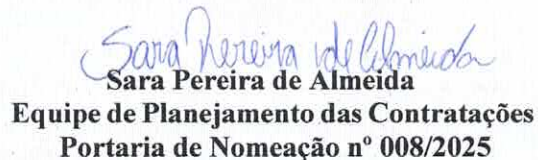 Sara Pereira de Almeida
Sara Pereira de Almeida
Equipe de Planejamento das Contratações
Portaria de Nomeação nº 008/2025